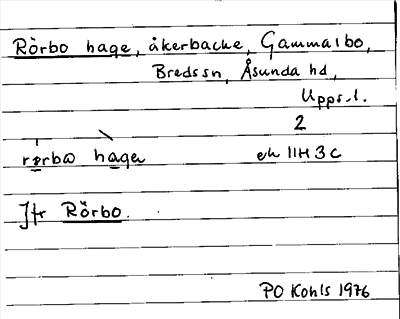 Rörbo hage, åkerbacke, Gammalbo,
Bredssn, Åsunda hd,
Upps. l.
2
rørbω hagα ek 11H 3c
Jfr Rörbo.
PO Kohls 1976